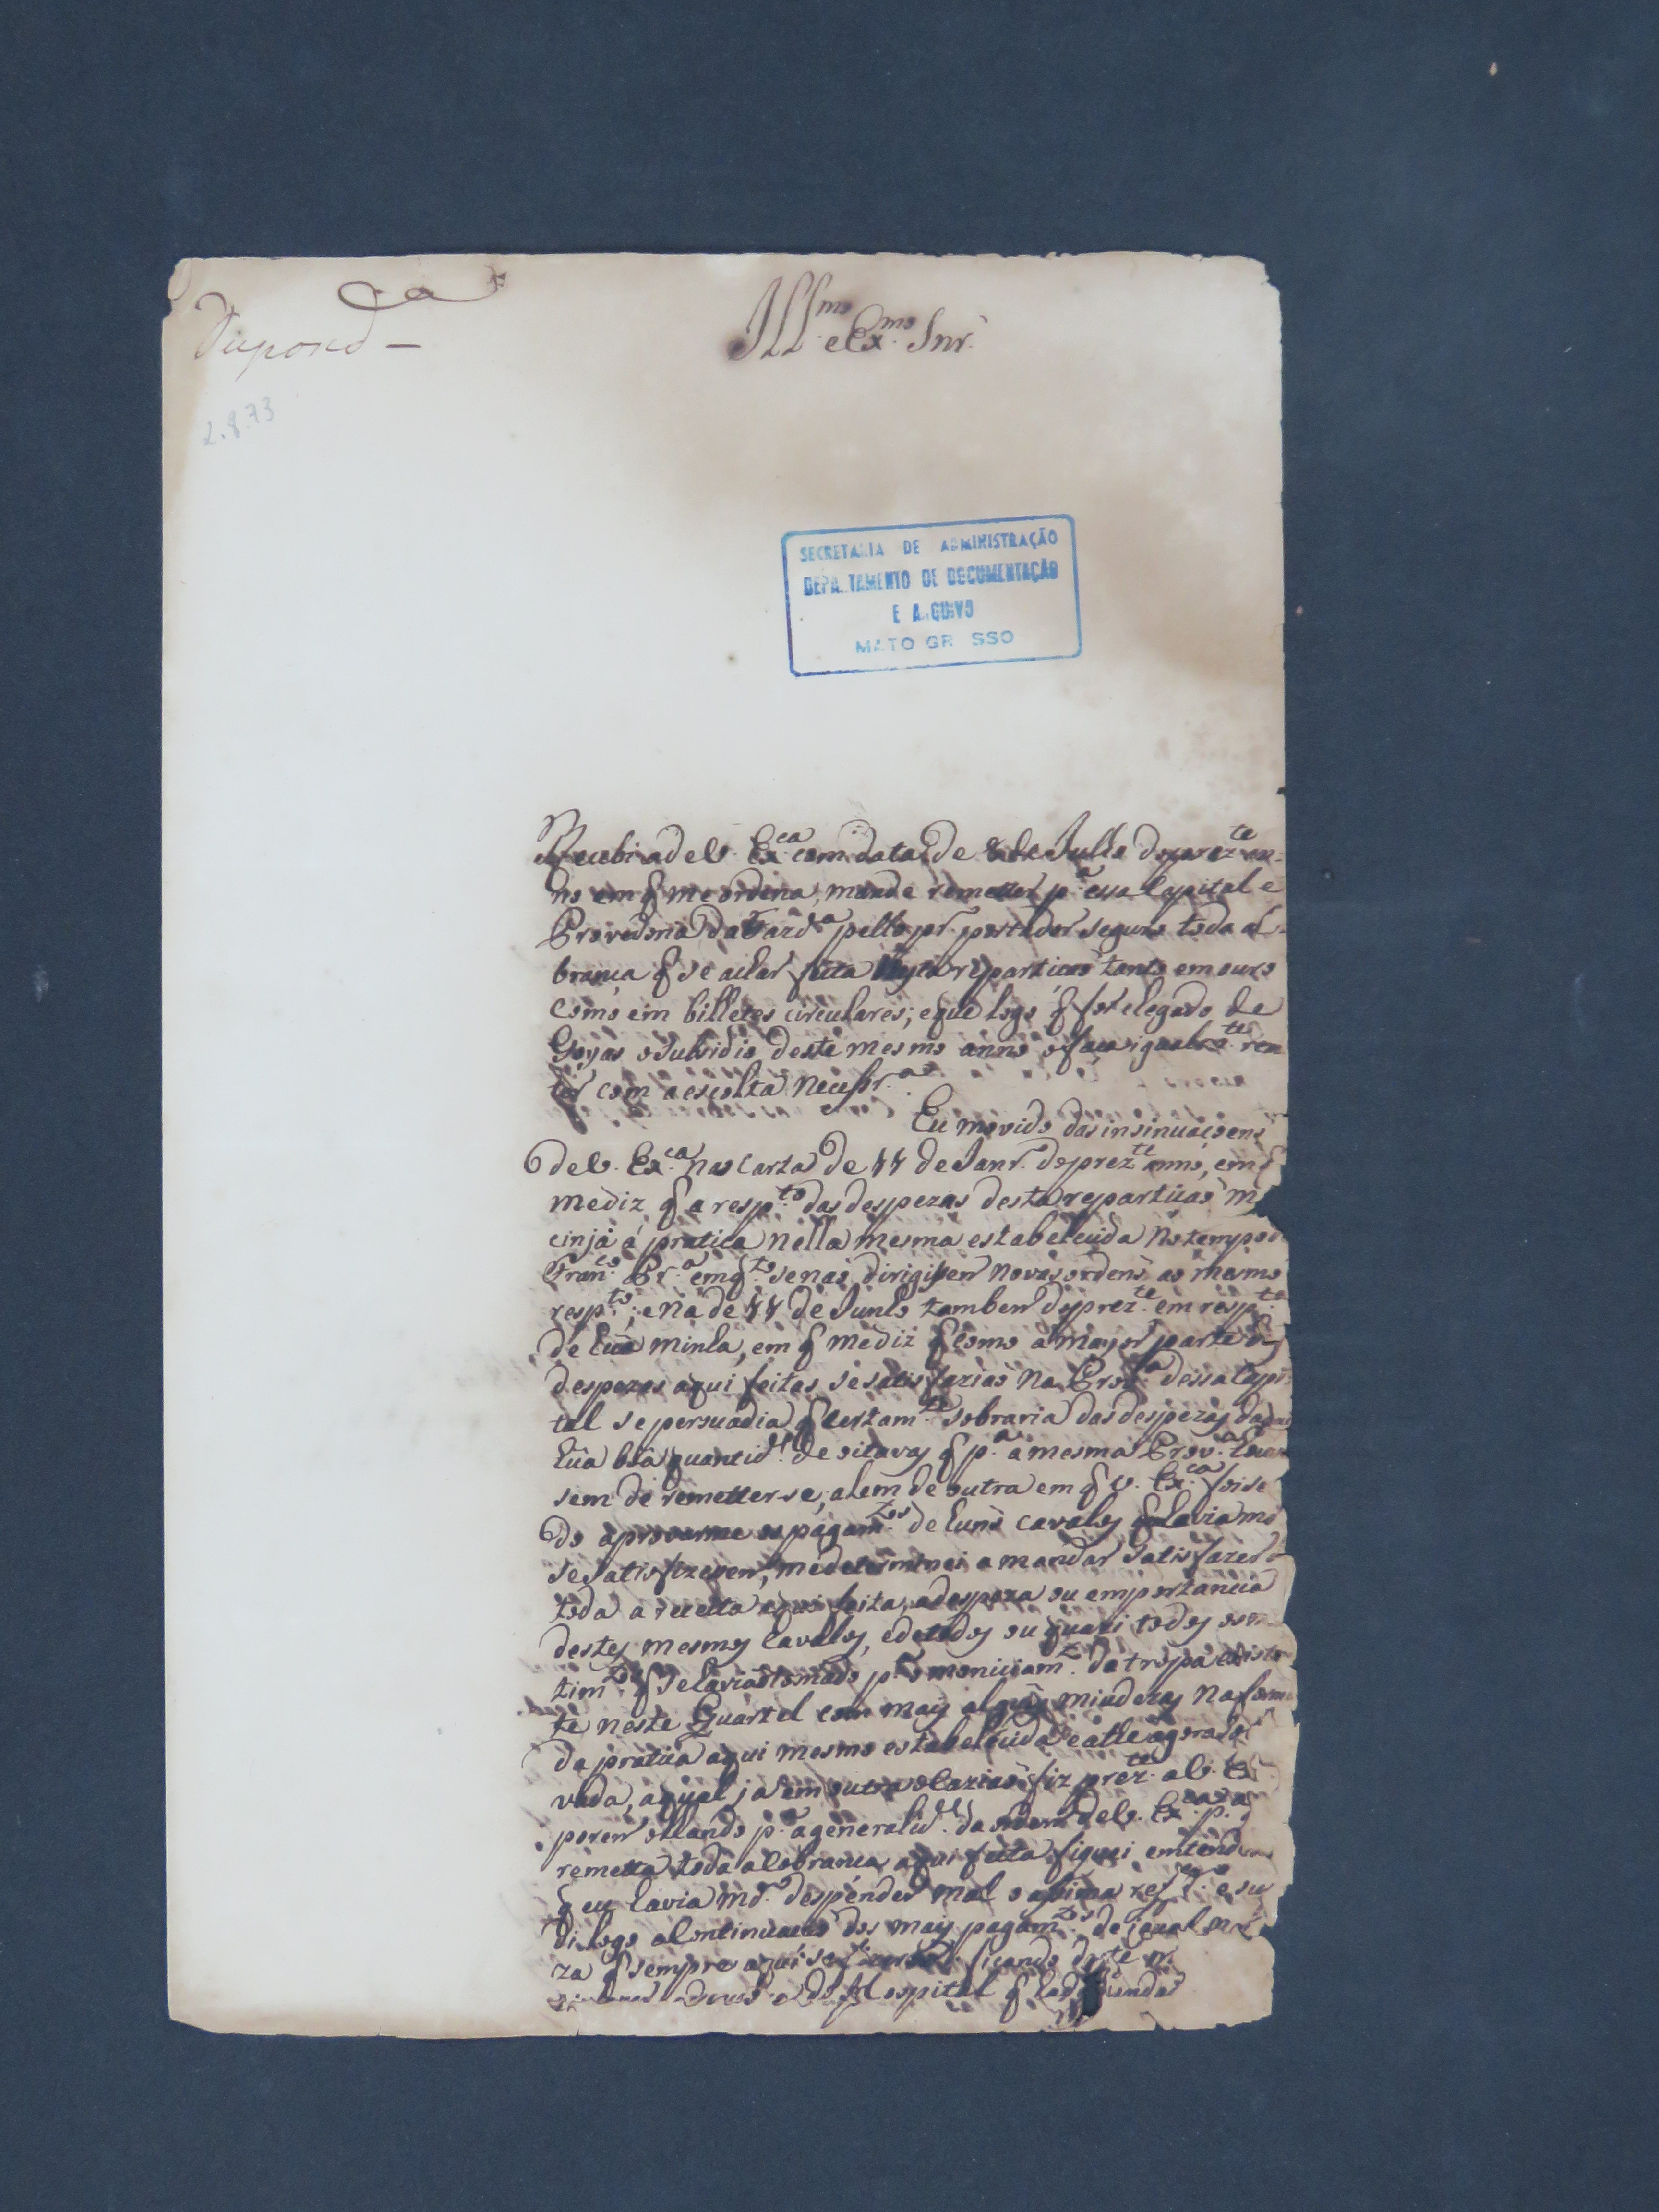 Ill.mo e Ex.mo Snr.
2.8.73
SECRETARIA DE ADMINISTRAÇÃO
DEPA TAMENTO DE DOCUMENTAÇÃO
E A GUIVO
MATO GR SSO
Recebi a de V. Ex.ca com data de 8 de Julho do prez.te an-
no em q me ordena, mande remetter p.a essa Capital e
Provedoria da Fazd.a pello pr. portador seguro toda a Co-
brança q se achar feita nesta repartiçaõ tanto em ouro
como em billetes circulares; e que logo q for chegado de
Goyas o Subsidio deste mesmo anno o faça igualm.te rem
ter com a escolta necessr.a
Eu movido das insinuaçoens
de V. Ex.ca na Carta de 11 de Janr. do prez.te anno, em q
me diz q a resp.to das despezas desta repartiçaõ m
cinja á pratica nella mesma estabelecida no tempo d
Fran.co Pr.a em q.to se naõ dirigissem novas ordens ao mesmo
resp.to; e na de 11 de Junho tambem do prez.te em resp.te
de huã minha, em q me diz q como a mayor parte d
despezas aqui feitas se satisfaziaõ na Prov.a dessa Capi
tal se persuadia q certam.te sobraria das despezas
huã boa quantid.e de oitavas q p.a a mesma Prov.a
sem de remetter-se, alem de outra em q V. Ex.ca
do aprovarme os pagam.tos de huns cavalos q havia m
se satisfizessem, me determinei a mandar satisfazer
toda a receita aqui feita, a despeza ou emportancia
destes mesmos Cavalos, e de todos ou quazi todos os m
tim.tos q se haviaõ tomado p.a o moniciam.to da tropa existe
te neste Quartel com mais algũas miudezas na forma
da pratica aqui mesmo estabelecida e athe agora
vada, a qual ja em outra ocaziaõ fiz prez.te a V. Ex
porem olhando p.a a generalid.e da ordem de V. Ex.ca p.a q
remetta toda a Cobrança aqui feita fiquei entend
q eu havia m.do despender mal o assima ref.do e su
di logo a Continuaçaõ dos mais pagam.tos de igual n
za q sempre aqui se
do Hospital q